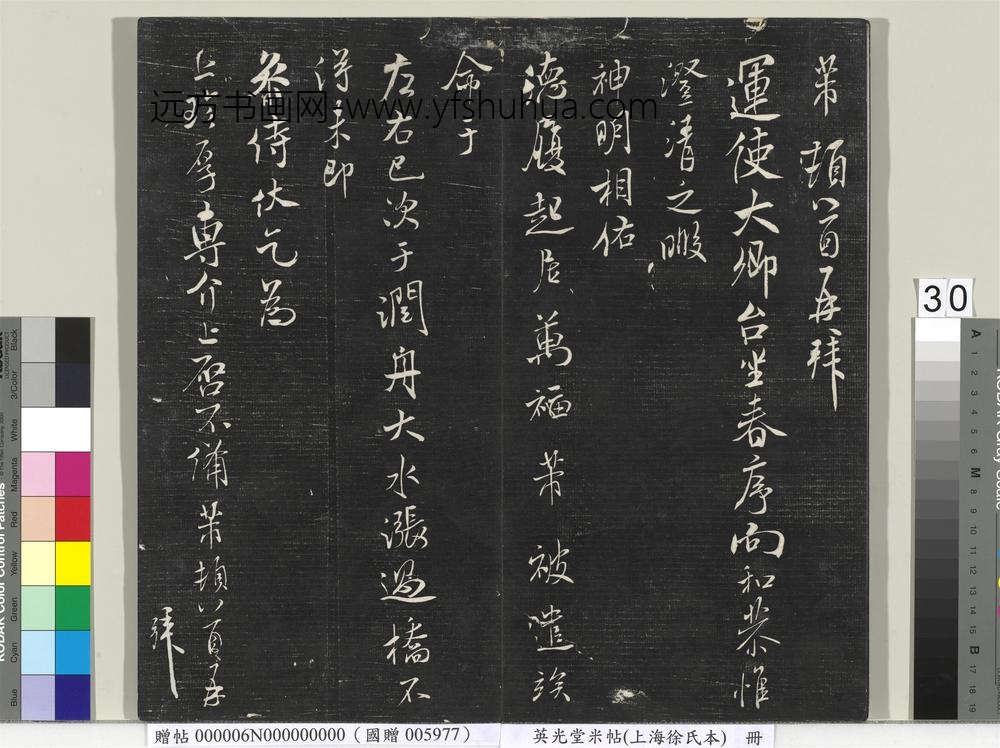 芾頓首再拜
運使大卿台坐春序向和恭惟
澄清之暇
神明相佑
德履起居萬福芾被遣誒
命于
左右已次于潤舟大水漲過橋不
得未即
參侍伏乞為
上珍厚專介上啓不備芾頓首再
拜
远方书画网 www.yfshuhua.com
30
贈帖 000006N000000000(國贈 005977)
英光堂米帖(上海徐氏本) 冊
KODAK Color Control Patches
Blue
Cyan
Green
Yellow
Red
Magenta
White
3/Color
Black
A 1 2 3 4 5 6 M 8 9 10 11 12 13 14 15 B 17 18 19